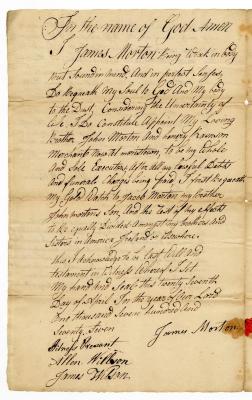 In the name of God Amen
I James Morton being Weak in body
but Sound in mind And in perfect Senses
Do Bequeath My Soul to God And My body
to the Dust, Considering the Uncertainty of
Life I Do Constitute Appoint My Loving
Brother John Morton And
Merchant Now at to be my Whole
And Sole Executors After all my Lawful Debts
And funeral Charges being paid I first Bequeath
My Gold Watch to Jacob Morton my brother
John Mortons Son, And the rest of my Effects
to be Equally Divided Amongst my brothers and
Sisters in America Ireland or Elsewhere
this I Acknowledge to be Last Will and
testament in Witness Whereof I Set
My hand and Seal this twenty Seventh
Day of April In the year of Our Lord
One thousand Seven hundred And
Seventy Seven
James Morton
Witness Present
Allen Willson
James Willson